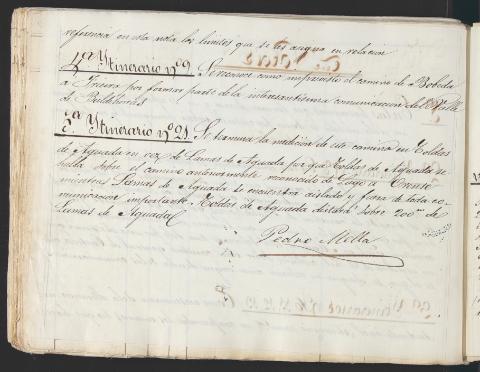 referencia en esta nota los límites que se les asigna en relacion
4.ª Ytinerario nº 9. Se recorre como impracticable el camino de Bobeda
a por formar parte de la interesantisima comunicacion de
á
5.ª Ytinerario nº 21. Se termina la medicion de este camino en Toldos
de Aguada en vez de Lamas de Aguada por que Toldos de Aguada se
halla sobre el camino anteriormente reconocido de Lugo a Orense
mientras Lamas de Aguada se encuentra aislado y fuera de toda co-
municacion importante. Toldos de Aguada distará sobre 200 m de
Lamas de Aguada
Pedro Mella